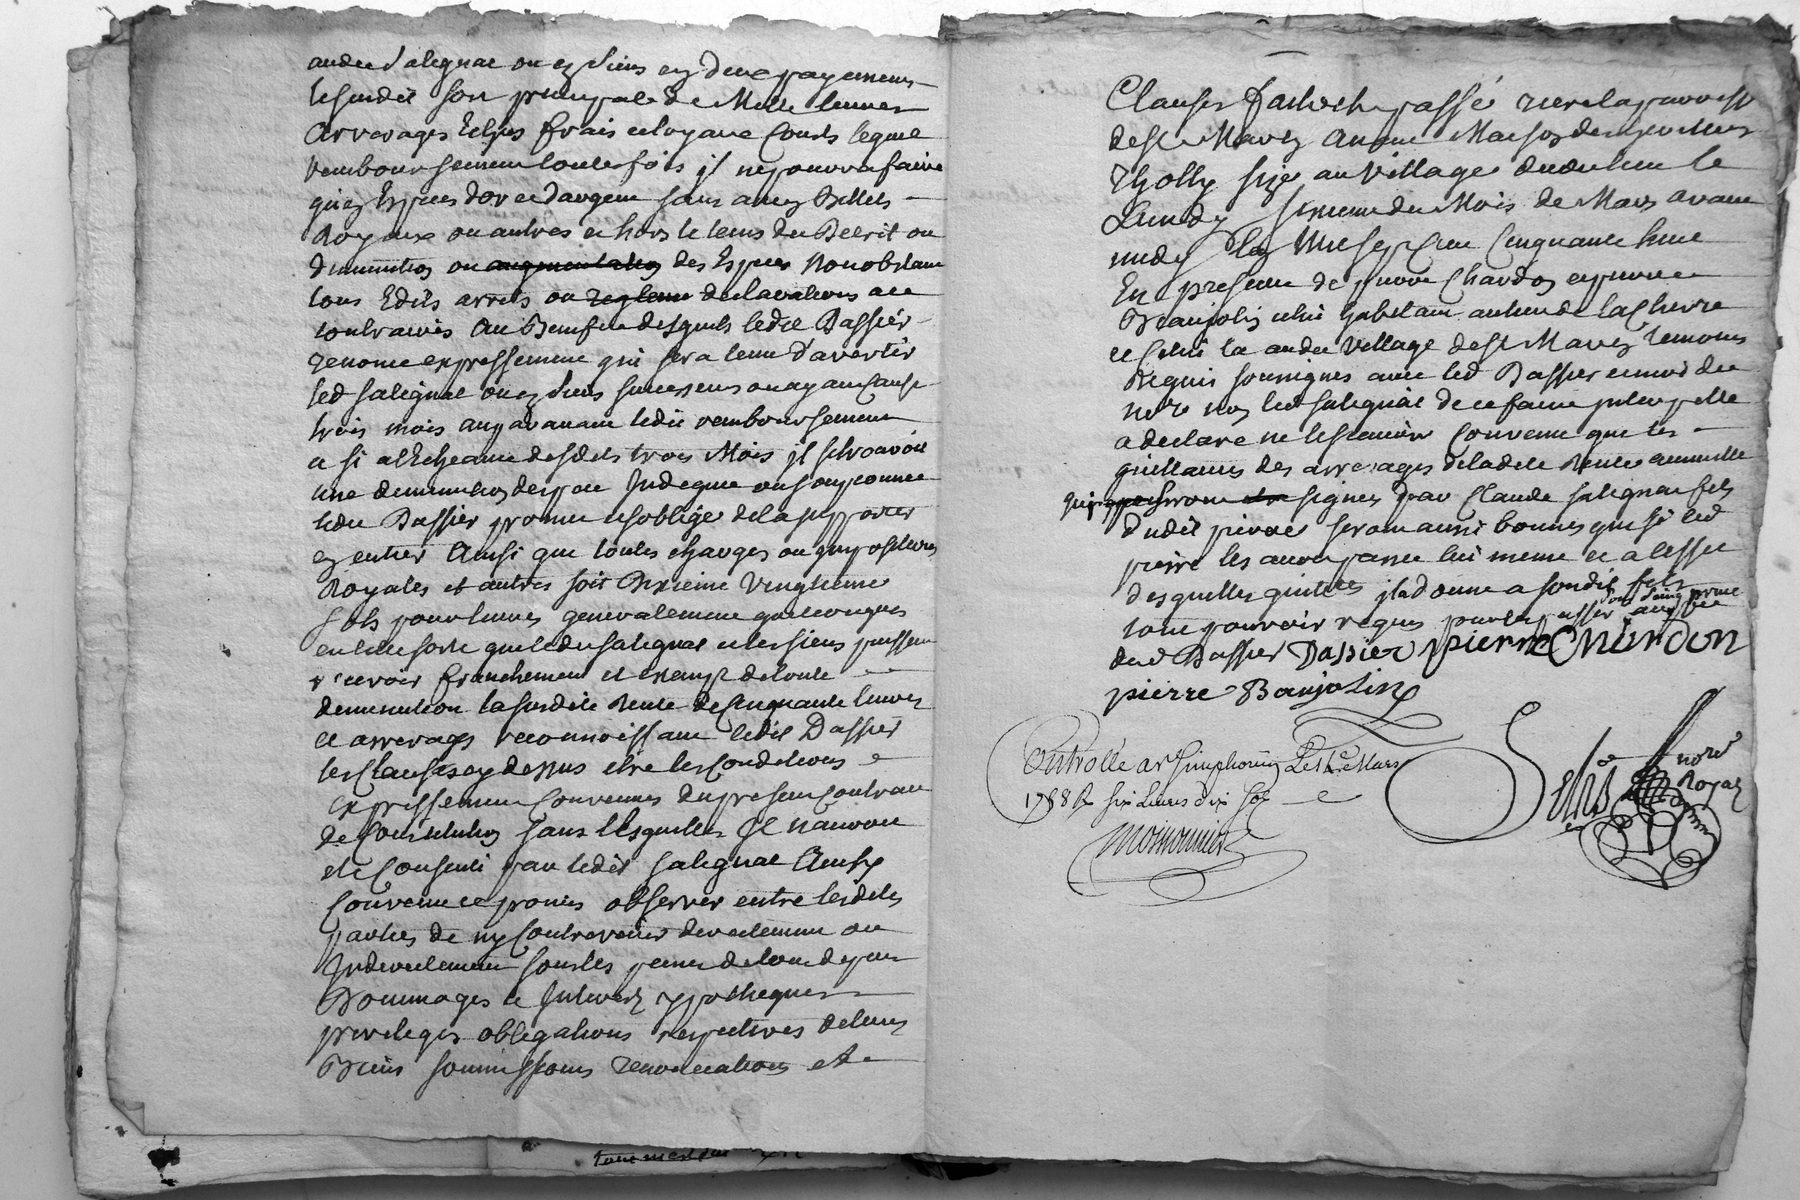 audit Salignat ou ez siens en deux payemens
le susdit sort principal de Mille livres
arrerages Echus frais et loyaux Couts lequel
remboursement toute fois il ne pourra faire
qu'en Especes d'or et d'argent sans aucuns Billets
Royaux ou autres et hors le tems du Decrit ou
diminution ou augmentation des Especes Nonobstant
tous Edits arrets ou reglem declarations au
contraires au Benefice desquels ledit Dassier
renonce expressement qui sera tenu d'avertir
led Salignat ou ez siens successeurs ou ayant Cause
trois mois auparavant ledit remboursement
et si a l'Echeance desdits trois Mois il se trouvoit
une diminution d'espece Indeque ou soupçonnee
ledit Dassier promet et s'oblige de la supporter
en entier Ainsi que toutes charges ou impositions
Royales et autres soit Dixieme Vingtieme
Sols pour livres generalement quelconques
en telle sorte que ledit Salignat et les siens puissent
recevoir franchement et exempt de toute
diminution la susdite Rente de Cinquante livres
et arrerages reconnoissant ledit Dassier
les Clauses cy dessus etre les Conditions
expressement Convenues du present Contrat
de Constitution sans lesquelles Il n'auroit
ete Consenti par ledit Salignat Ainsy
Convenu et promis observer entre lesdites
parties de ny Contrevenir directement ou
Indirectement sous les peines de tous depens
Dommages et Interets ypotheques
privileges obligations respectives de leurs
Biens soumissions renonciations et
Clauses fait et passé rierre la paroisse
de St Mavez Maison de
Tholly size au Village dudit lieu le
Lundy sixieme du Mois de Mars avant
midy L'an Mil sept Cent Cinquante huit
En presence de pierre Chardon et pierre
Beaujolin celui habitant au lieu de la Cherre
et celui la audit Village de St Mavez temoins
Requis soussignes avec led Dassier et moi dit
notre non led Salignat de ce faire interpellé
a declaré ne le sçavoir Convenu que les
quittances des arrerages de ladite Rente annuelle
qui seront signées par Claude Salignat fils
dudit pierre seront aussi bonnes que si led
pierre les avoit passé lui meme et a l'effet
desquelles quittces il a donné a son dit fils
tout pouvoir requis pour les passer sous seing privé
au profit
dud Dassier Dassier pierre Chardon
pierre Baujolin
Controllé a St Simphorien Le 12e Mars
1758 R six Livres dix sols
Moinonnier
notre
Royal